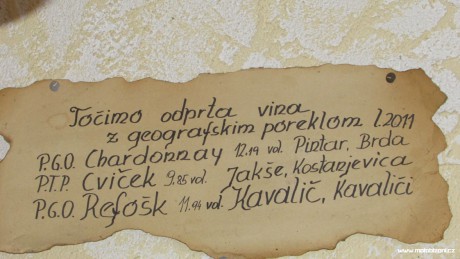 Točimo odprta vina
z geografskim poreklom l.2011
P.G.O. Chardonnay 12.19 vol. Pintar, Brda
P.T.P. Cviček 9.85 vol. Jakše, Kostanjevica
P.G.O. Refošk 11.94 vol. Kavalič, Kavaliči